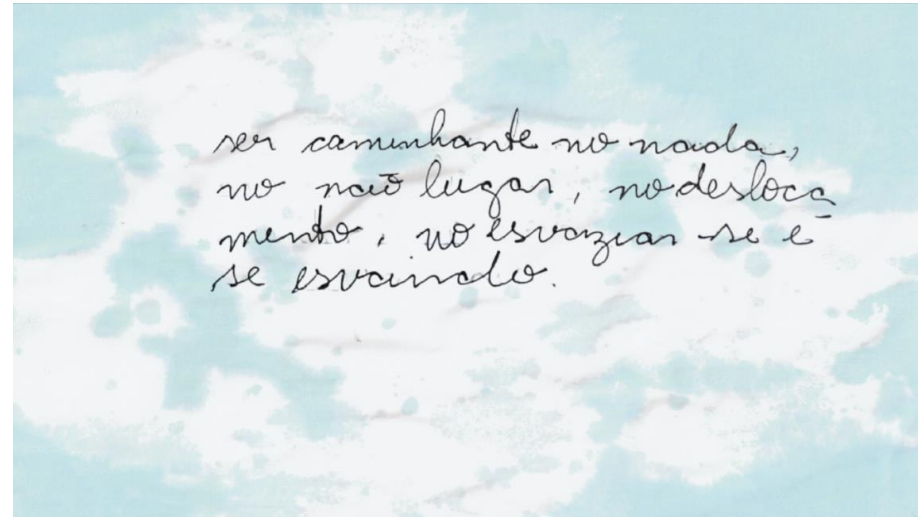 ser caminhante no nada,
no não lugar, no desloca
mento, no esvaziar-se e
se esvaindo.